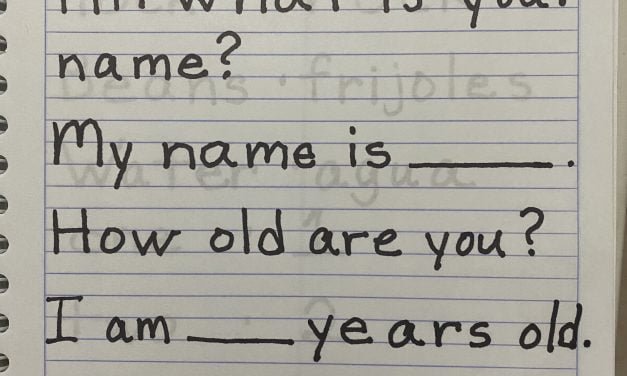 Hi! What is your
name?
My name is ______.
How old are you?
I am ____ years old.
beans · frijoles
water agua